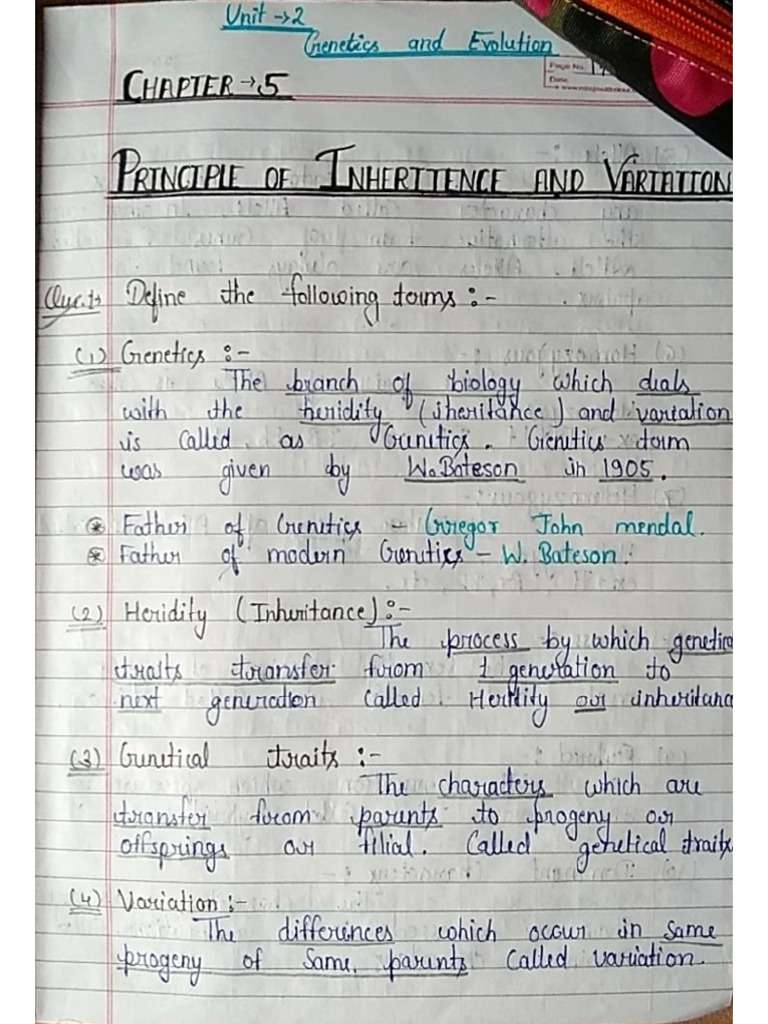 Unit → 2
Genetics and Evolution
Page No.
Date
CHAPTER → 5
PRINCIPLE OF INHERITENCE AND VARIATION
Que.1→ Define the following terms :-
(1) Genetics :-
The branch of biology which dials
with the heridity (iheritance) and variation
is called as Genetics. Genetics term
was given by W. Bateson in 1905.
⊛ Father of Genetics - Gregor John mendal.
⊛ Father of modern Genetics - W. Bateson.
(2) Heridity (Inheritance) :-
The process by which genetica
traits transfer from 1 generation to
next generation called Heridity or inheritanc
(3) Genetical traits :-
The characters which are
transfer from parents to progeny or
offsprings or filial. Called genetical traits
(4) Variation :-
The differences which occur in same
progeny of same parents called variation.